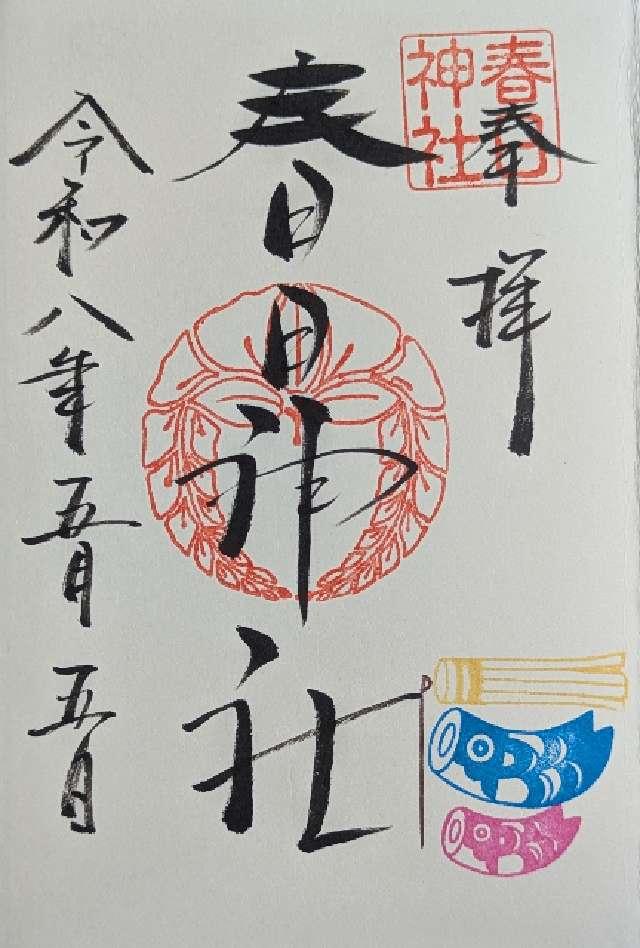 奉拝
春日
神社
春日神社
令和八年五月五日